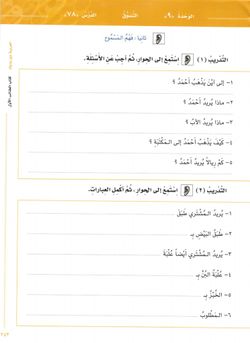 الوَحْدَة «٩» التَّسَوُّق الدَّرْس «٧٨»
ثانيا - فَهْمُ المَسْمُوع
التَّدْرِيبُ (١) اِسْتَمِعْ إِلَى الحِوَارِ، ثُمَّ أَجِبْ عَنِ الأَسْئِلَةِ.
١- إِلَى أَيْنَ يَذْهَبُ أَحْمَدُ ؟
٢- ماذا يُرِيدُ أَحْمَدُ ؟
٣- ماذا يُرِيدُ الأَبُ ؟
٤- كَيْفَ يَذْهَبُ أَحْمَدُ إِلَى المَكْتَبَةِ ؟
٥- كَمْ رِيالاً يُرِيدُ أَحْمَدُ ؟
التَّدْرِيبُ (٢) اِسْتَمِعْ إِلَى الحِوَارِ، ثُمَّ أَكْمِلِ العِبارَاتِ.
١- يُرِيدُ المُشْتَرِي طَبَقَ
٢- طَبَقُ البَيْضِ بِـ
٣- يُرِيدُ المُشْتَرِي أَيْضاً عُلْبَةَ
٤- عُلْبَةُ البُنِّ بِـ
٥- الخُبْزُ بِـ
٦- المَطْلُوبُ